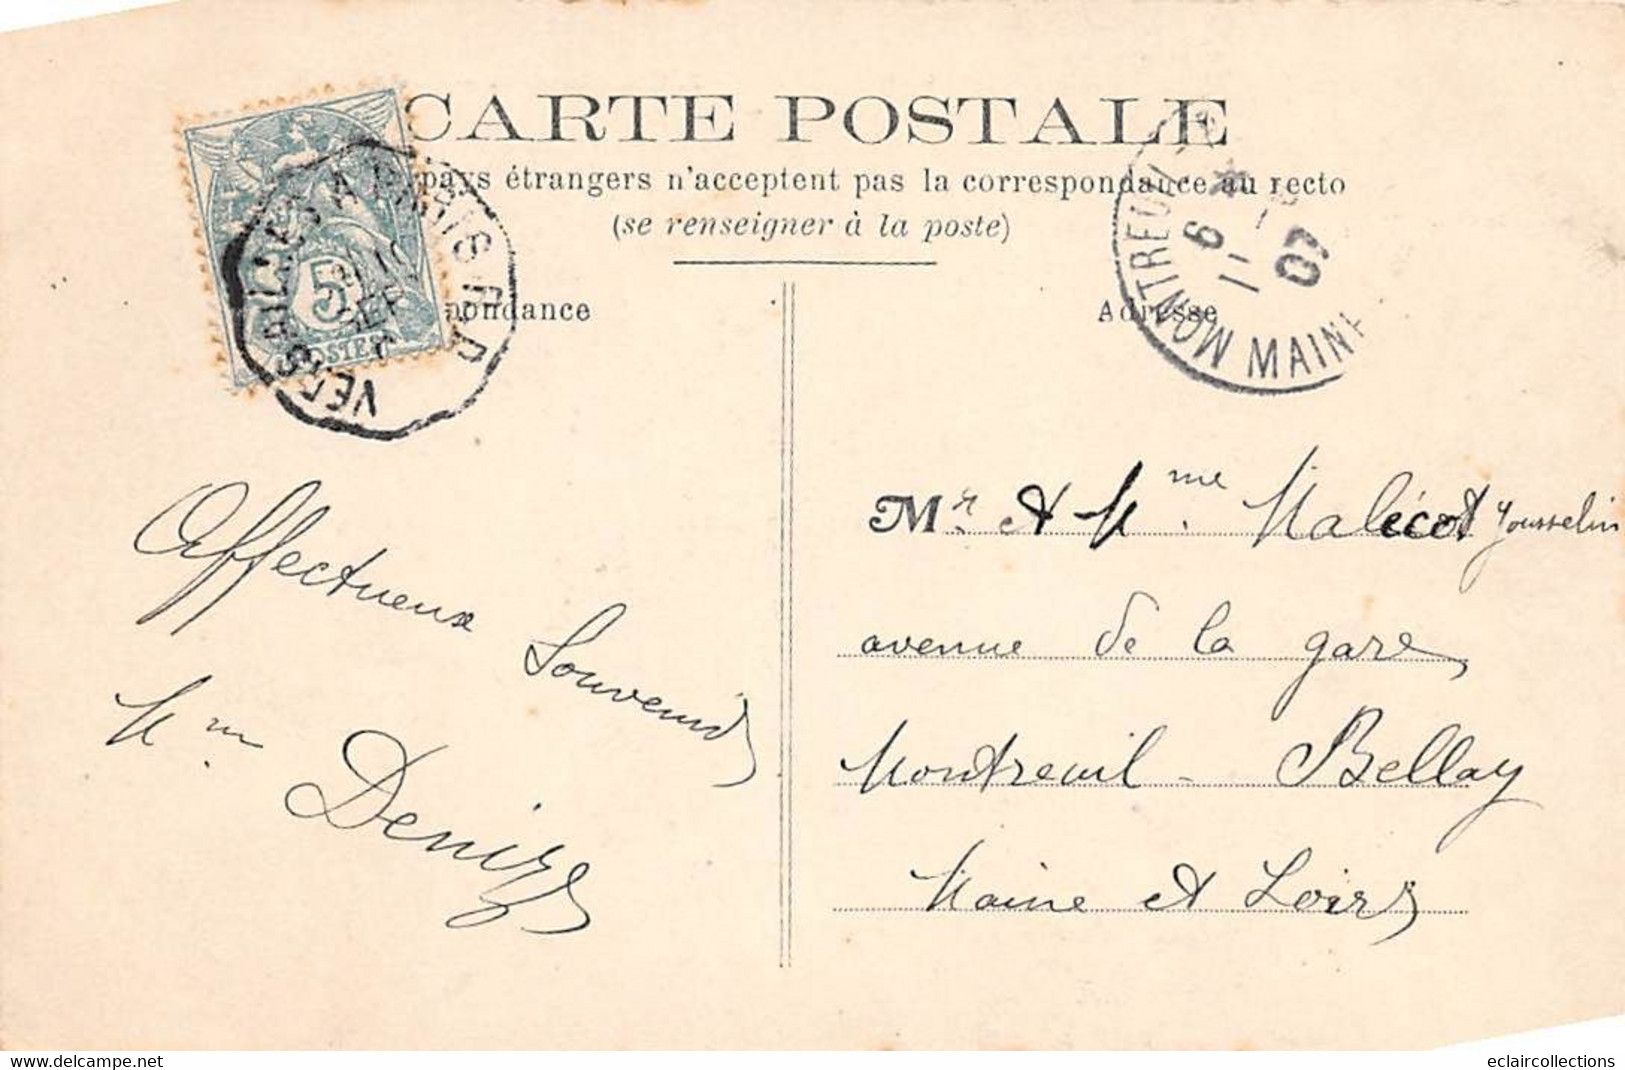 CARTE POSTALE
pays étrangers n'acceptent pas la correspondance au recto
(se renseigner à la poste)
pondance
Adresse
VERSAILLES A PARIS R.D
10
SEPT
5
POSTES
MONTREUIL
MAINE
6
11
07
Affectueux
Souvenir
Mme
Denize
Mr et Mme Malécot Jousselin
avenue de la gare
Montreuil-Bellay
Maine et Loire
www.delcampe.net
eclaircollections